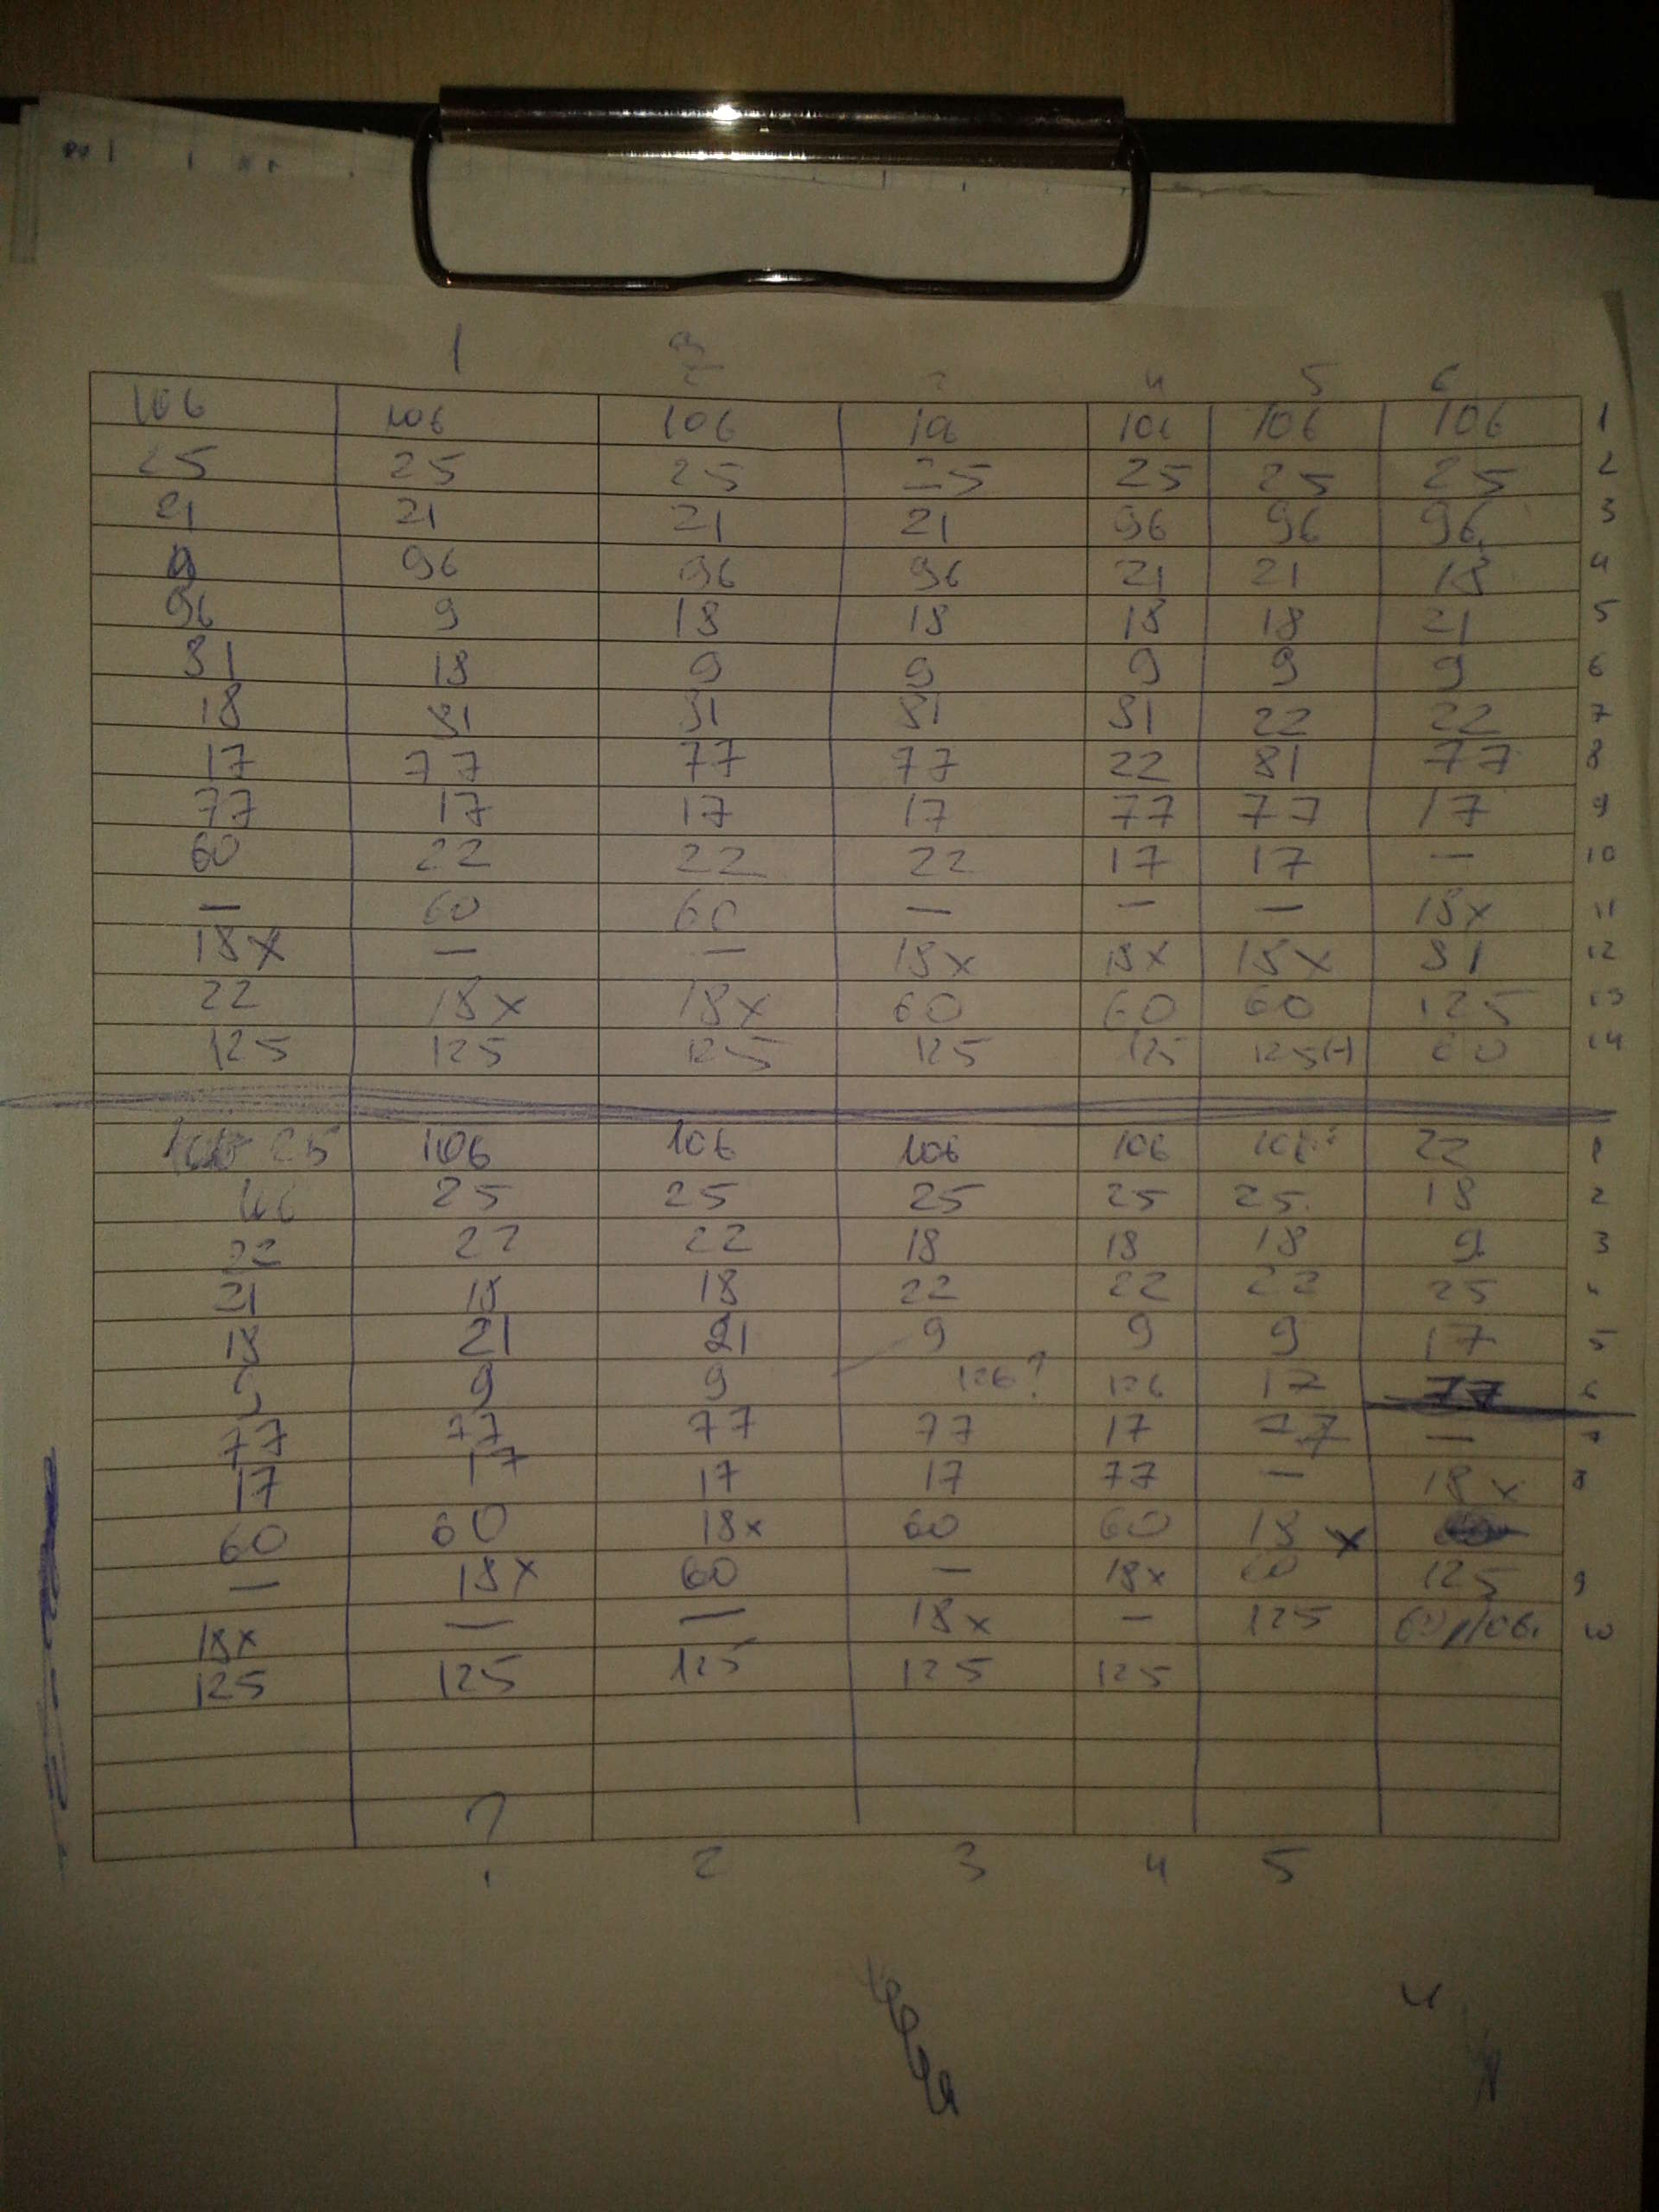 1 2 3 4 5 6
106 106 106 106 106 106 106 1
25 25 25 25 25 25 25 2
21 21 21 21 96 96 96 3
9 96 96 96 21 21 18 4
96 9 18 18 18 18 21 5
81 18 9 9 9 9 9 6
18 81 81 81 81 22 22 7
17 77 77 77 22 81 77 8
77 17 17 17 77 77 17 9
60 22 22 22 17 17 — 10
— 60 60 — — — 18x 11
18x — — 18x 18x 18x 81 12
22 18x 18x 60 60 60 125 13
125 125 125 125 125 125(-) 60 14
25 106 106 106 106 106 22 1
106 25 25 25 25 25 18 2
22 22 22 18 18 18 9 3
21 18 18 22 22 22 25 4
18 21 21 9 9 9 17 5
9 9 9 126? 126 17 77 6
77 77 77 77 17 77 — 7
17 17 17 17 77 — 18x 8
60 60 18x 60 60 18x
— 18x 60 — 18x 60 125 9
18x — — 18x — 125 60 106. 10
125 125 125 125 125
?
1 2 3 4 5